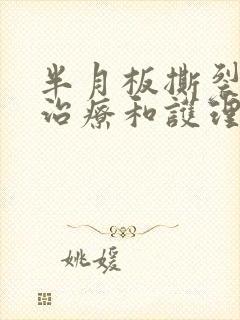 半月板撕裂
治療和護理
姚媛